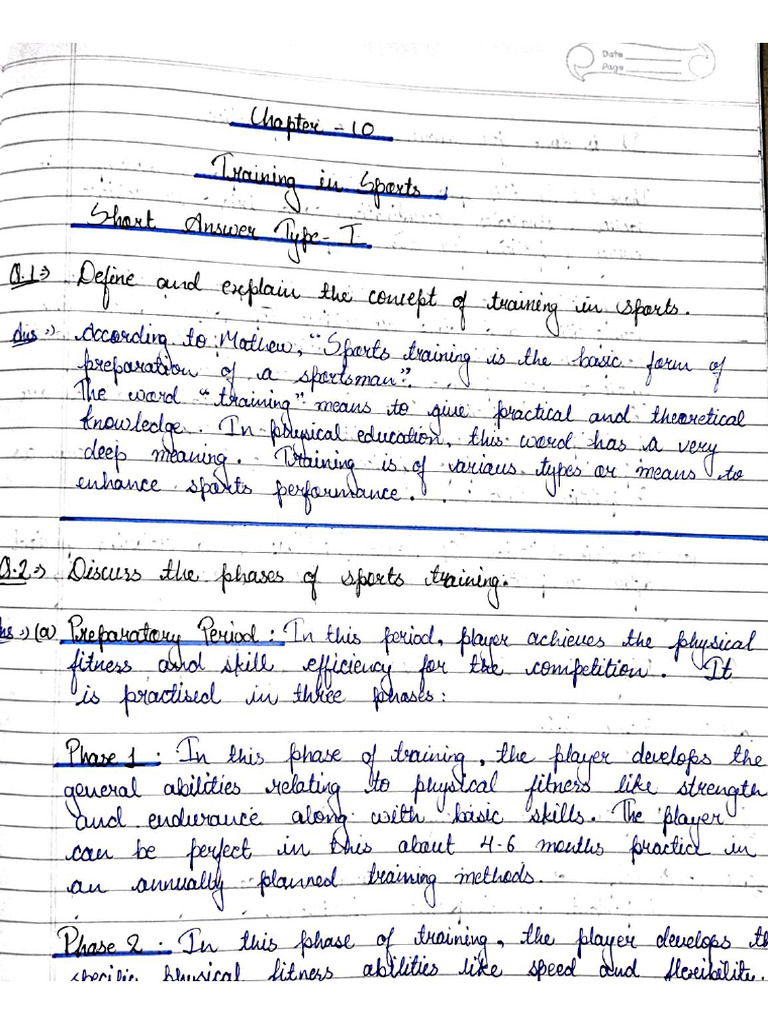 Date
Page
Chapter - 10
Training in Sports
Short Answer Type - I
Q.1⇒ Define and explain the concept of training in sports.
Ans :-) According to Mathew, "Sports training is the basic form of
preparation of a sportsman".
The word "training" means to give practical and theoretical
knowledge. In physical education, this word has a very
deep meaning. Training is of various types or means to
enhance sports performance.
Q.2⇒ Discuss the phases of sports training.
Ans :-) (a) Preparatory Period : In this period, player achieves the physical
fitness and skill efficiency for the competition. It
is practised in three phases :
Phase 1 : In this phase of training, the player develops the
general abilities relating to physical fitness like strength
and endurance along with basic skills. The player
can be perfect in this about 4-6 months practice in
an annually planned training methods.
Phase 2 : In this phase of training, the player develops th
specific physical fitness abilities like speed and flexibility.